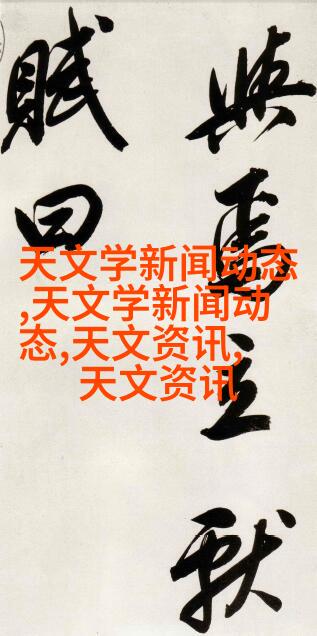 與焉立獻
賦曰
天文学新闻动态
,天文学新闻动
态,天文资讯,
天文资讯